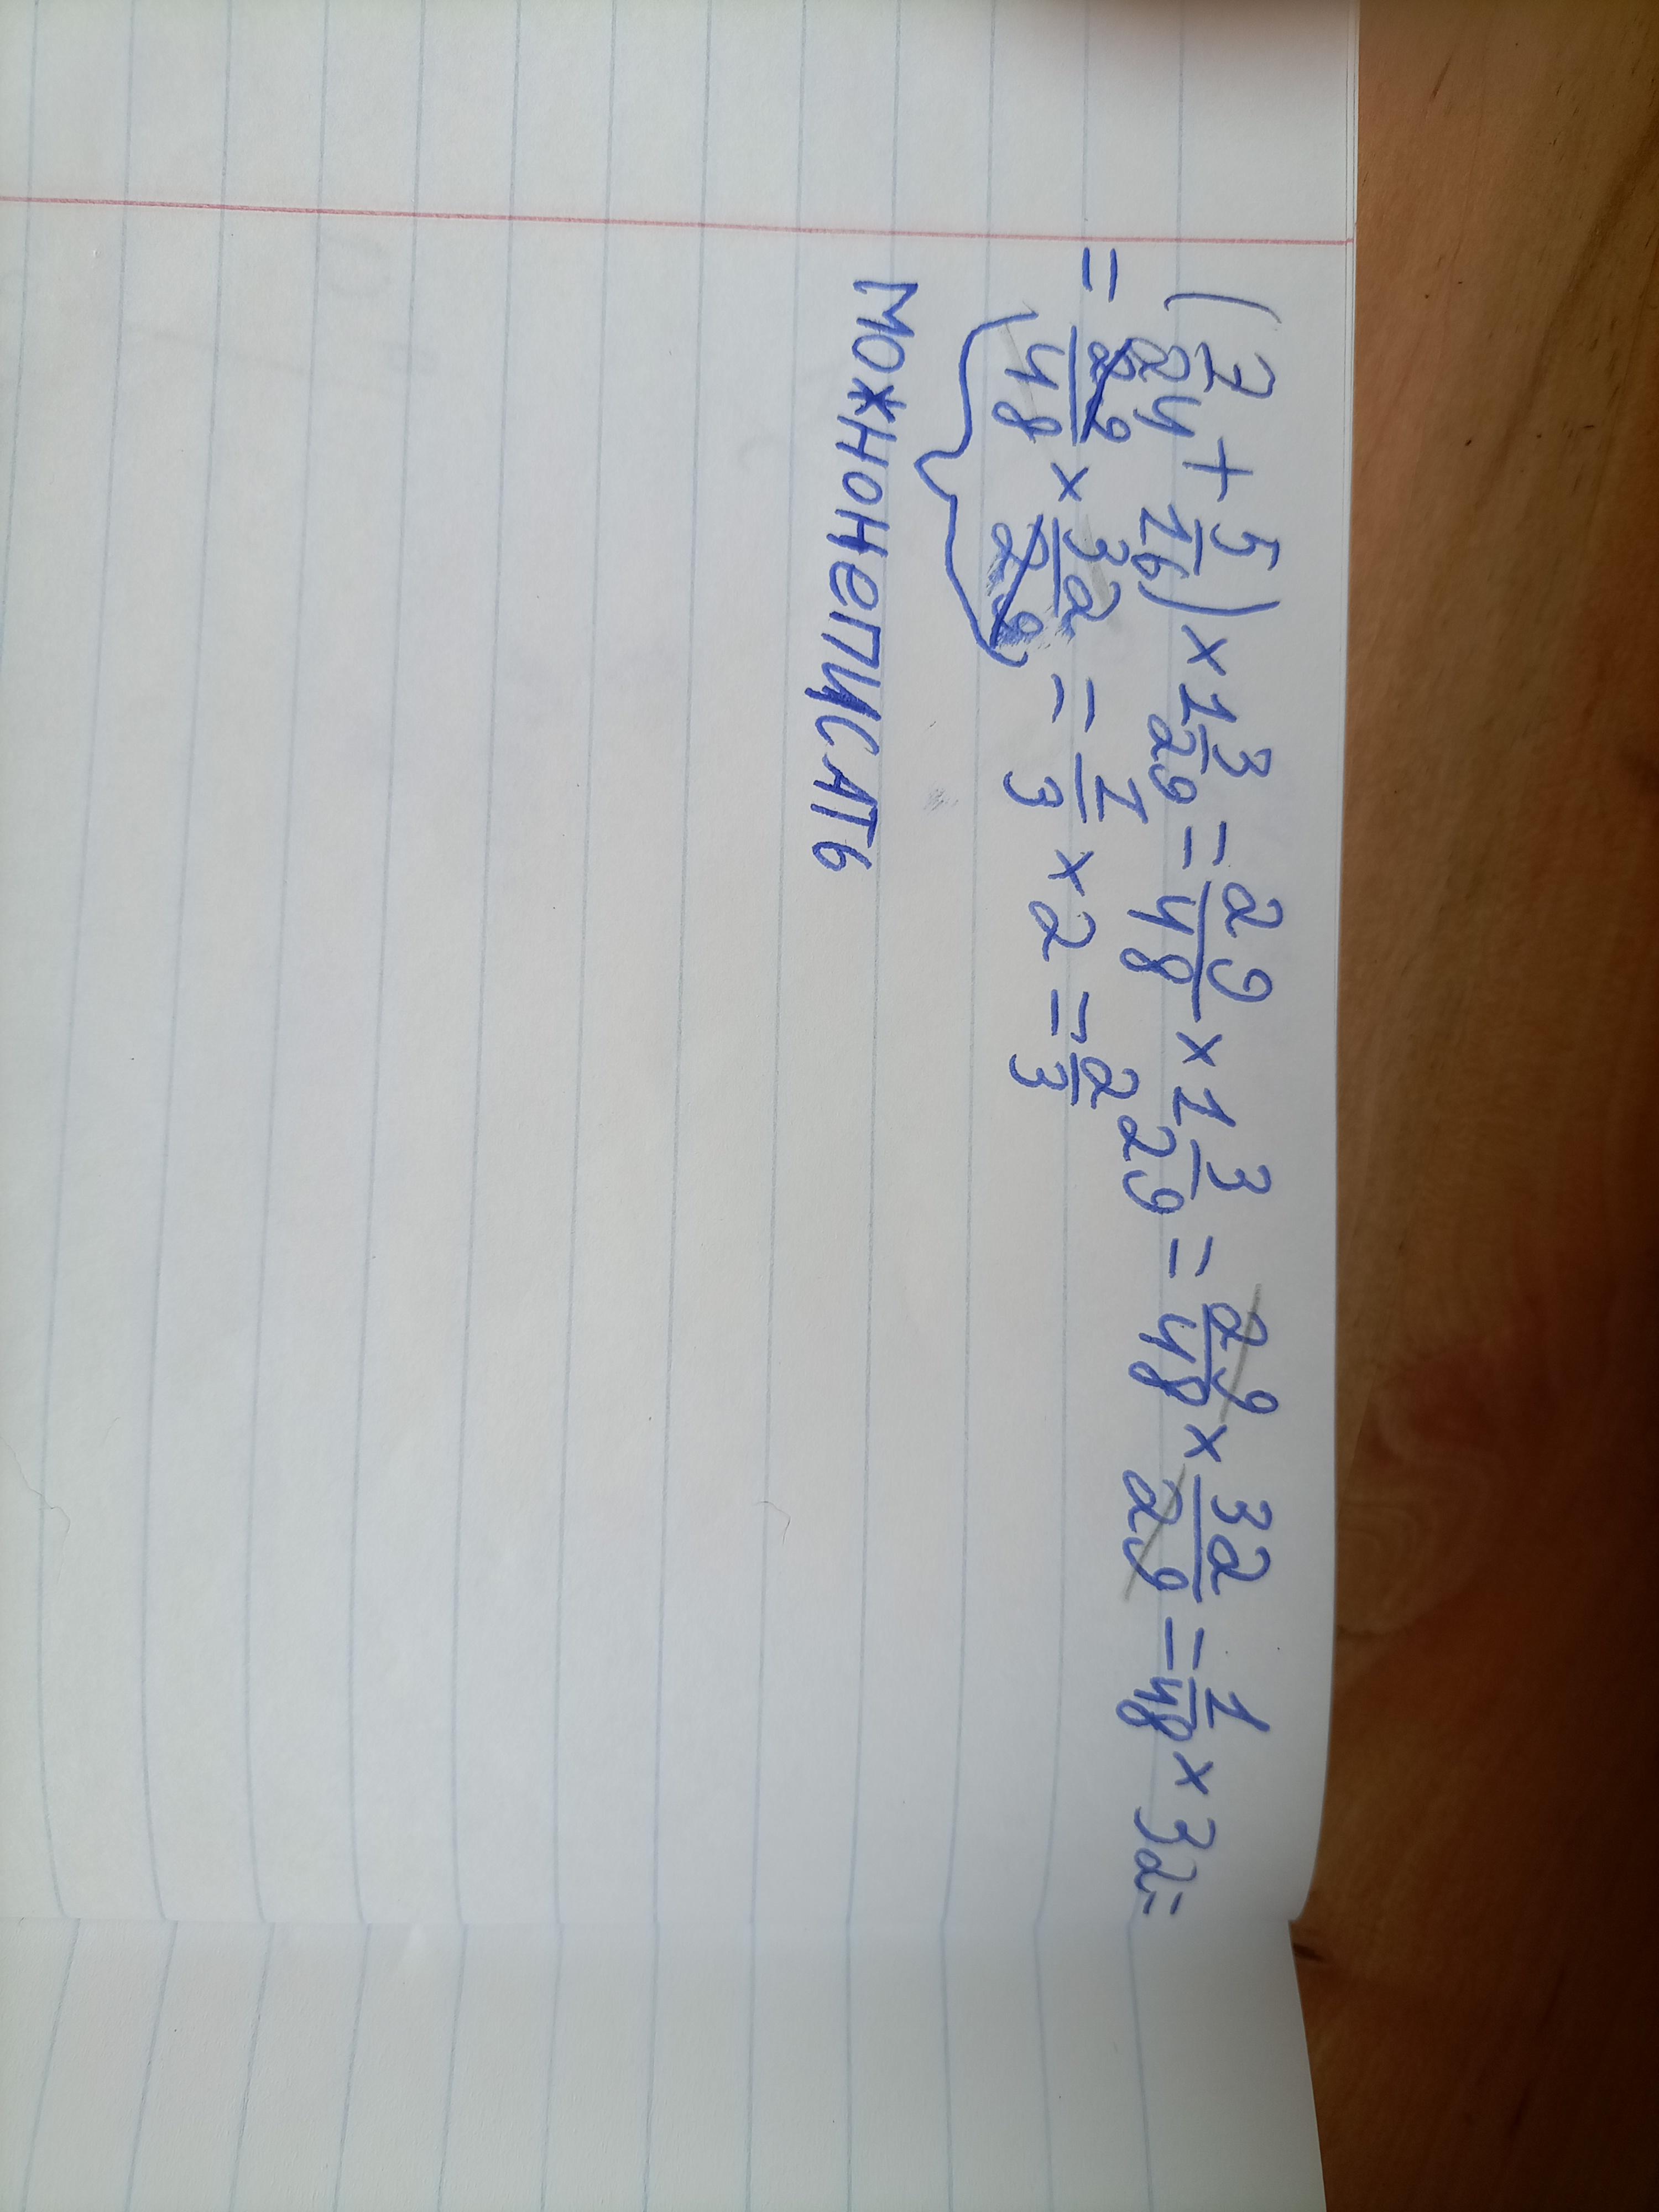 (7/24 + 5/16) × 1 3/29 = 29/48 × 1 3/29 = 29/48 × 32/29 = 1/48 × 32 =
= 29/48 × 32/29 = 1/3 × 2 = 2/3
можно не писать